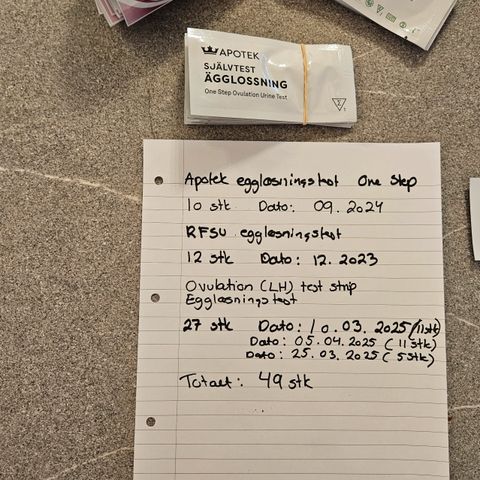 APOTEK
SJÄLVTEST
ÄGGLOSSNING
One Step Ovulation Urine Test
Apotek eggløsningstest One Step
10 stk Dato: 09.2024
RFSU eggløsningstest
12 stk Dato: 12.2023
Ovulation (LH) test strip
Eggløsningstest
27 stk Dato: 10.03.2025 (11 stk)
Dato: 05.04.2025 (11 stk)
Dato: 25.03.2025 (5 stk)
Totalt: 49 stk